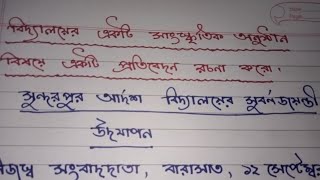 বিদ্যালয়ের একটি সাংস্কৃতিক অনুষ্ঠান
বিষয়ে একটি প্রতিবেদন রচনা করো।
সুন্দরপুর আদর্শ বিদ্যালয়ের সুবর্ণজয়ন্তী
উদযাপন
নিজস্ব সংবাদদাতা, বারাসাত, ১২ সেপ্টেম্বর